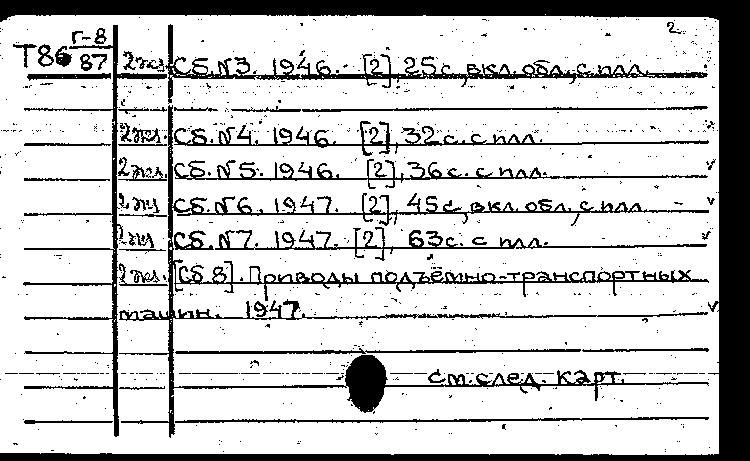 2
Т86 Г-8/87 2 экз. Сб. №3. 1946. [2], 25 с., вкл. обл., с илл.
2 экз. Сб. №4. 1946. [2], 32 с. с илл.
2 экз. Сб. №5. 1946. [2], 36 с. с илл.
2 экз Сб. №6. 1947. [2], 45 с., вкл. обл., с илл
2 экз Сб. №7. 1947. [2], 63 с. с илл.
2 экз. [Сб. 8]. Приводы подъёмно-транспортных
машин. 1947.
см. след. карт.